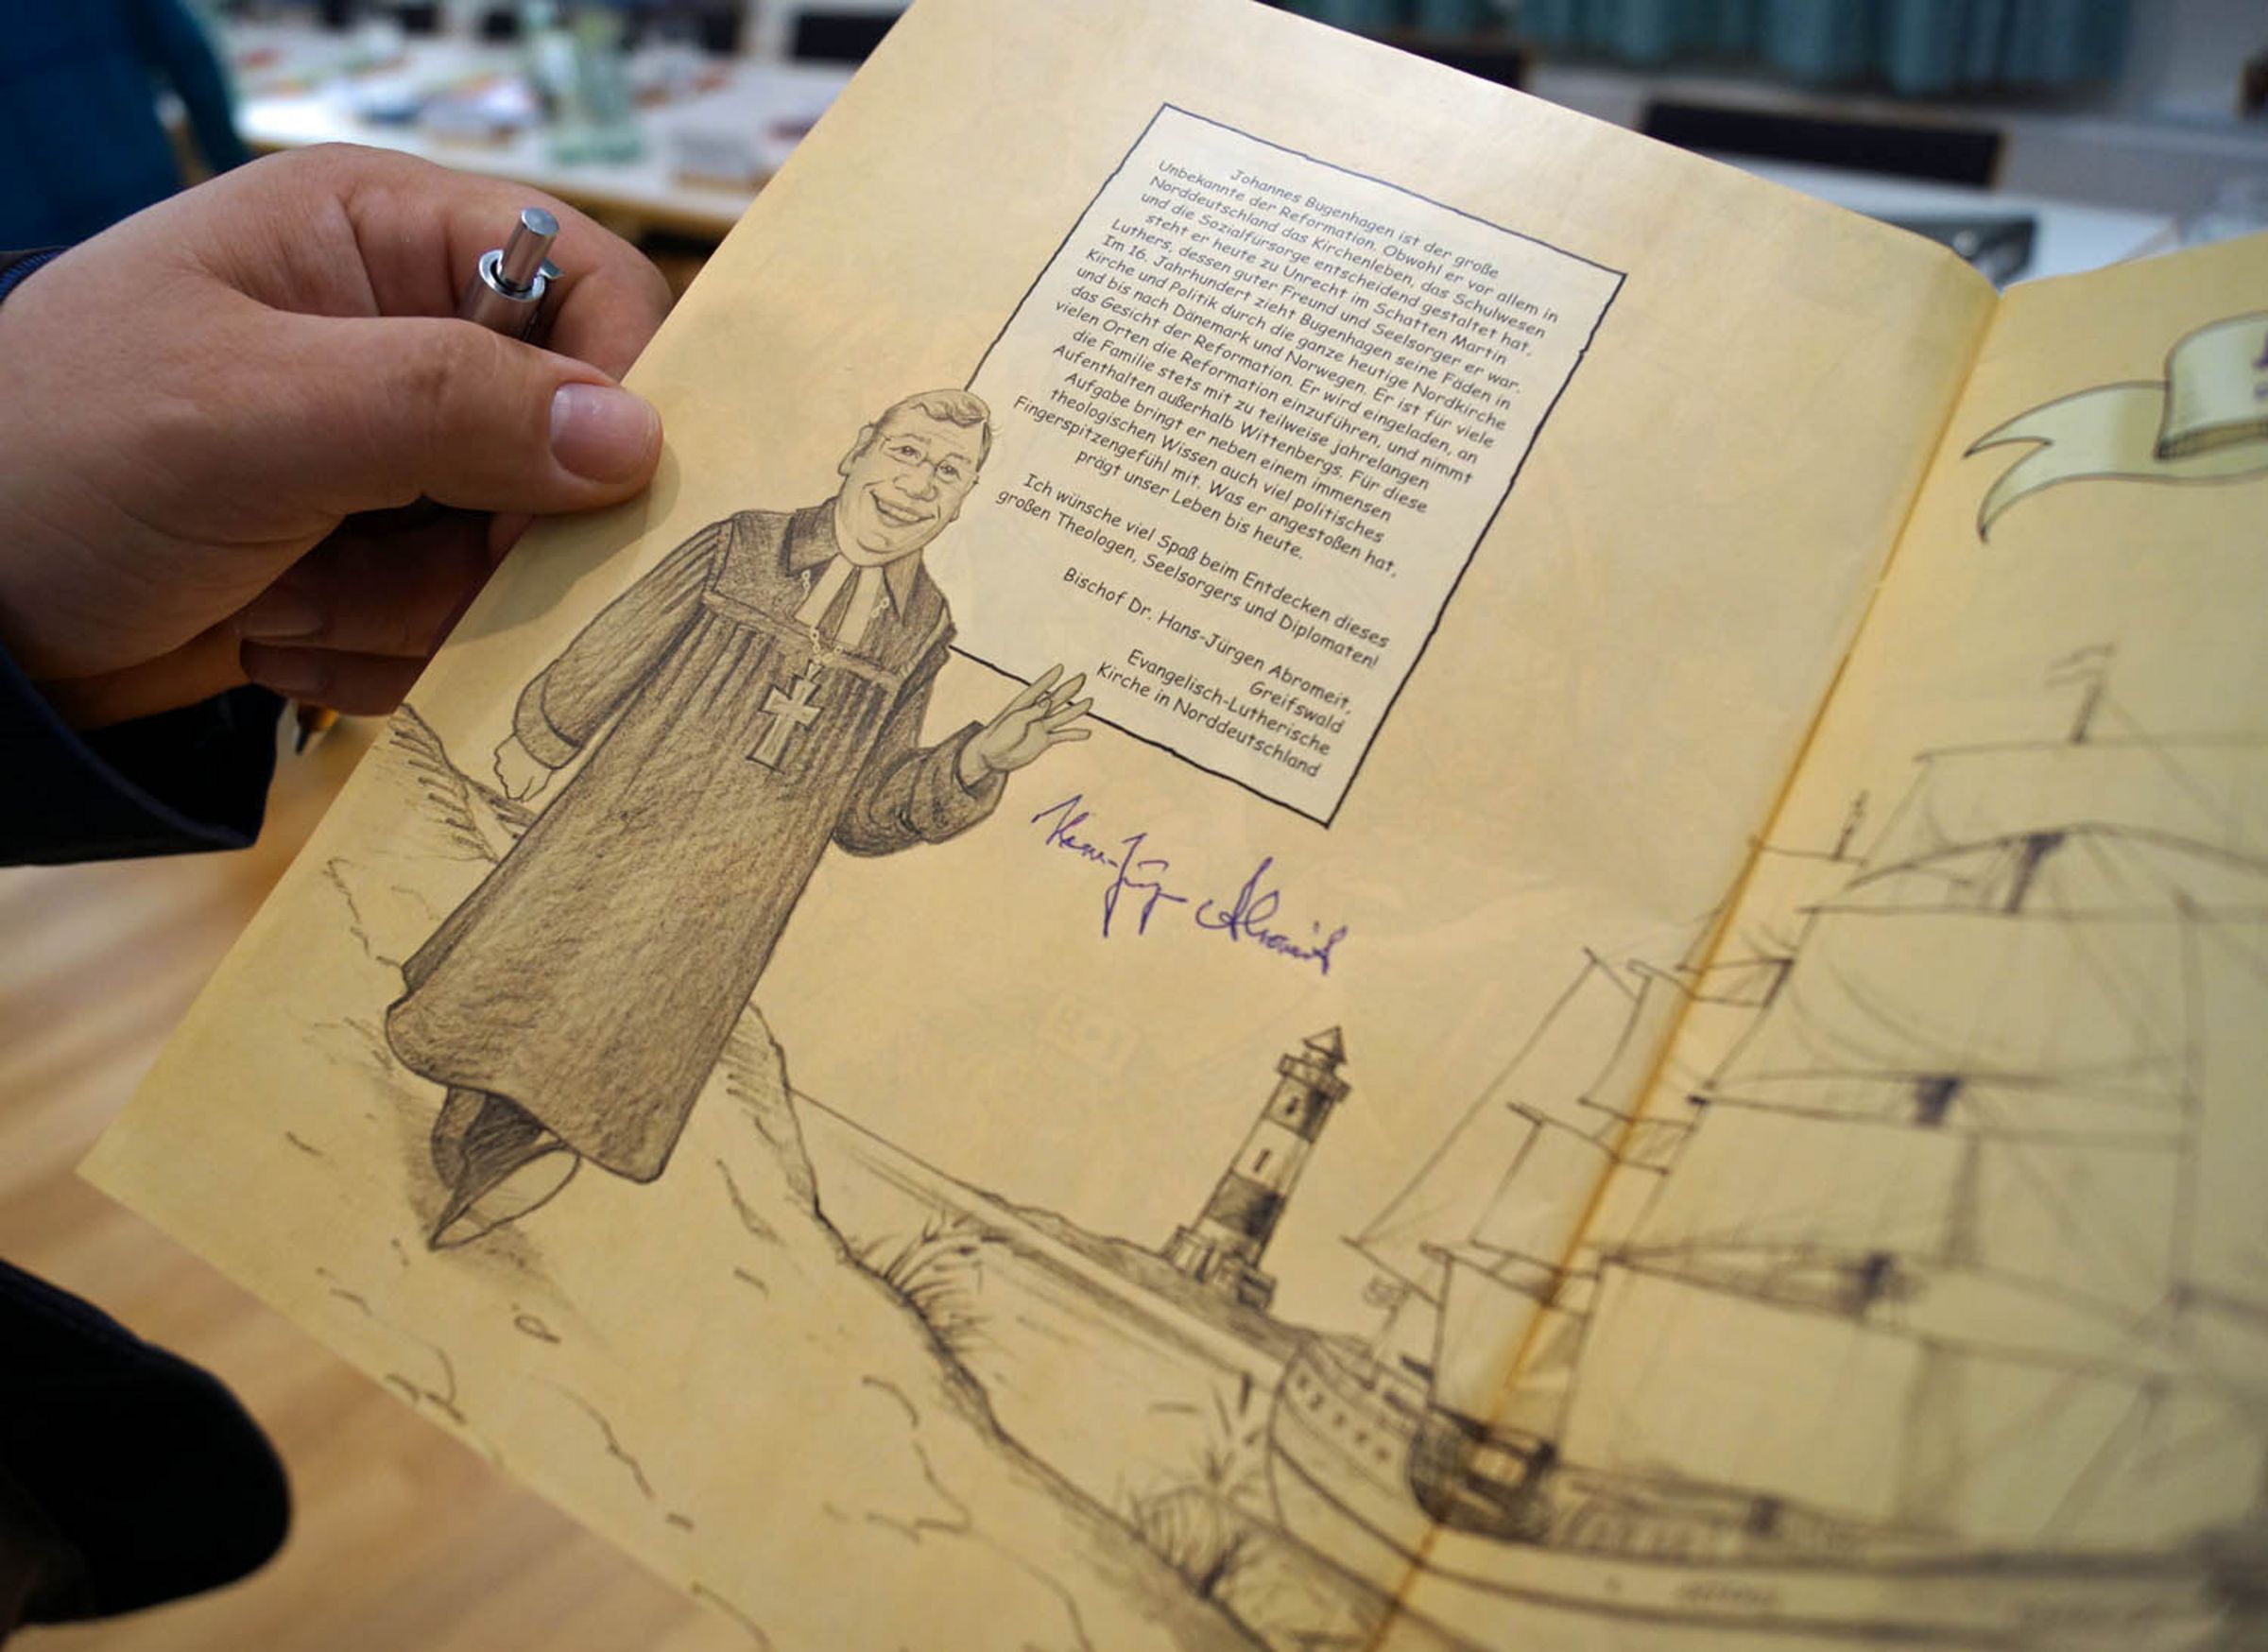 Johannes Bugenhagen ist der große
Unbekannte der Reformation. Obwohl er vor allem in
Norddeutschland das Kirchenleben, das Schulwesen
und die Sozialfürsorge entscheidend gestaltet hat,
steht er heute zu Unrecht im Schatten Martin
Luthers, dessen guter Freund und Seelsorger er war.
Im 16. Jahrhundert zieht Bugenhagen seine Fäden in
Kirche und Politik durch die ganze heutige Nordkirche
und bis nach Dänemark und Norwegen. Er ist für viele
das Gesicht der Reformation. Er wird eingeladen, an
vielen Orten die Reformation einzuführen, und nimmt
die Familie stets mit zu teilweise jahrelangen
Aufenthalten außerhalb Wittenbergs. Für diese
Aufgabe bringt er neben einem immensen
theologischen Wissen auch viel politisches
Fingerspitzengefühl mit. Was er angestoßen hat,
prägt unser Leben bis heute.
Ich wünsche viel Spaß beim Entdecken dieses
großen Theologen, Seelsorgers und Diplomaten!
Bischof Dr. Hans-Jürgen Abromeit,
Greifswald
Evangelisch-Lutherische
Kirche in Norddeutschland
Hans-Jürgen Abromeit